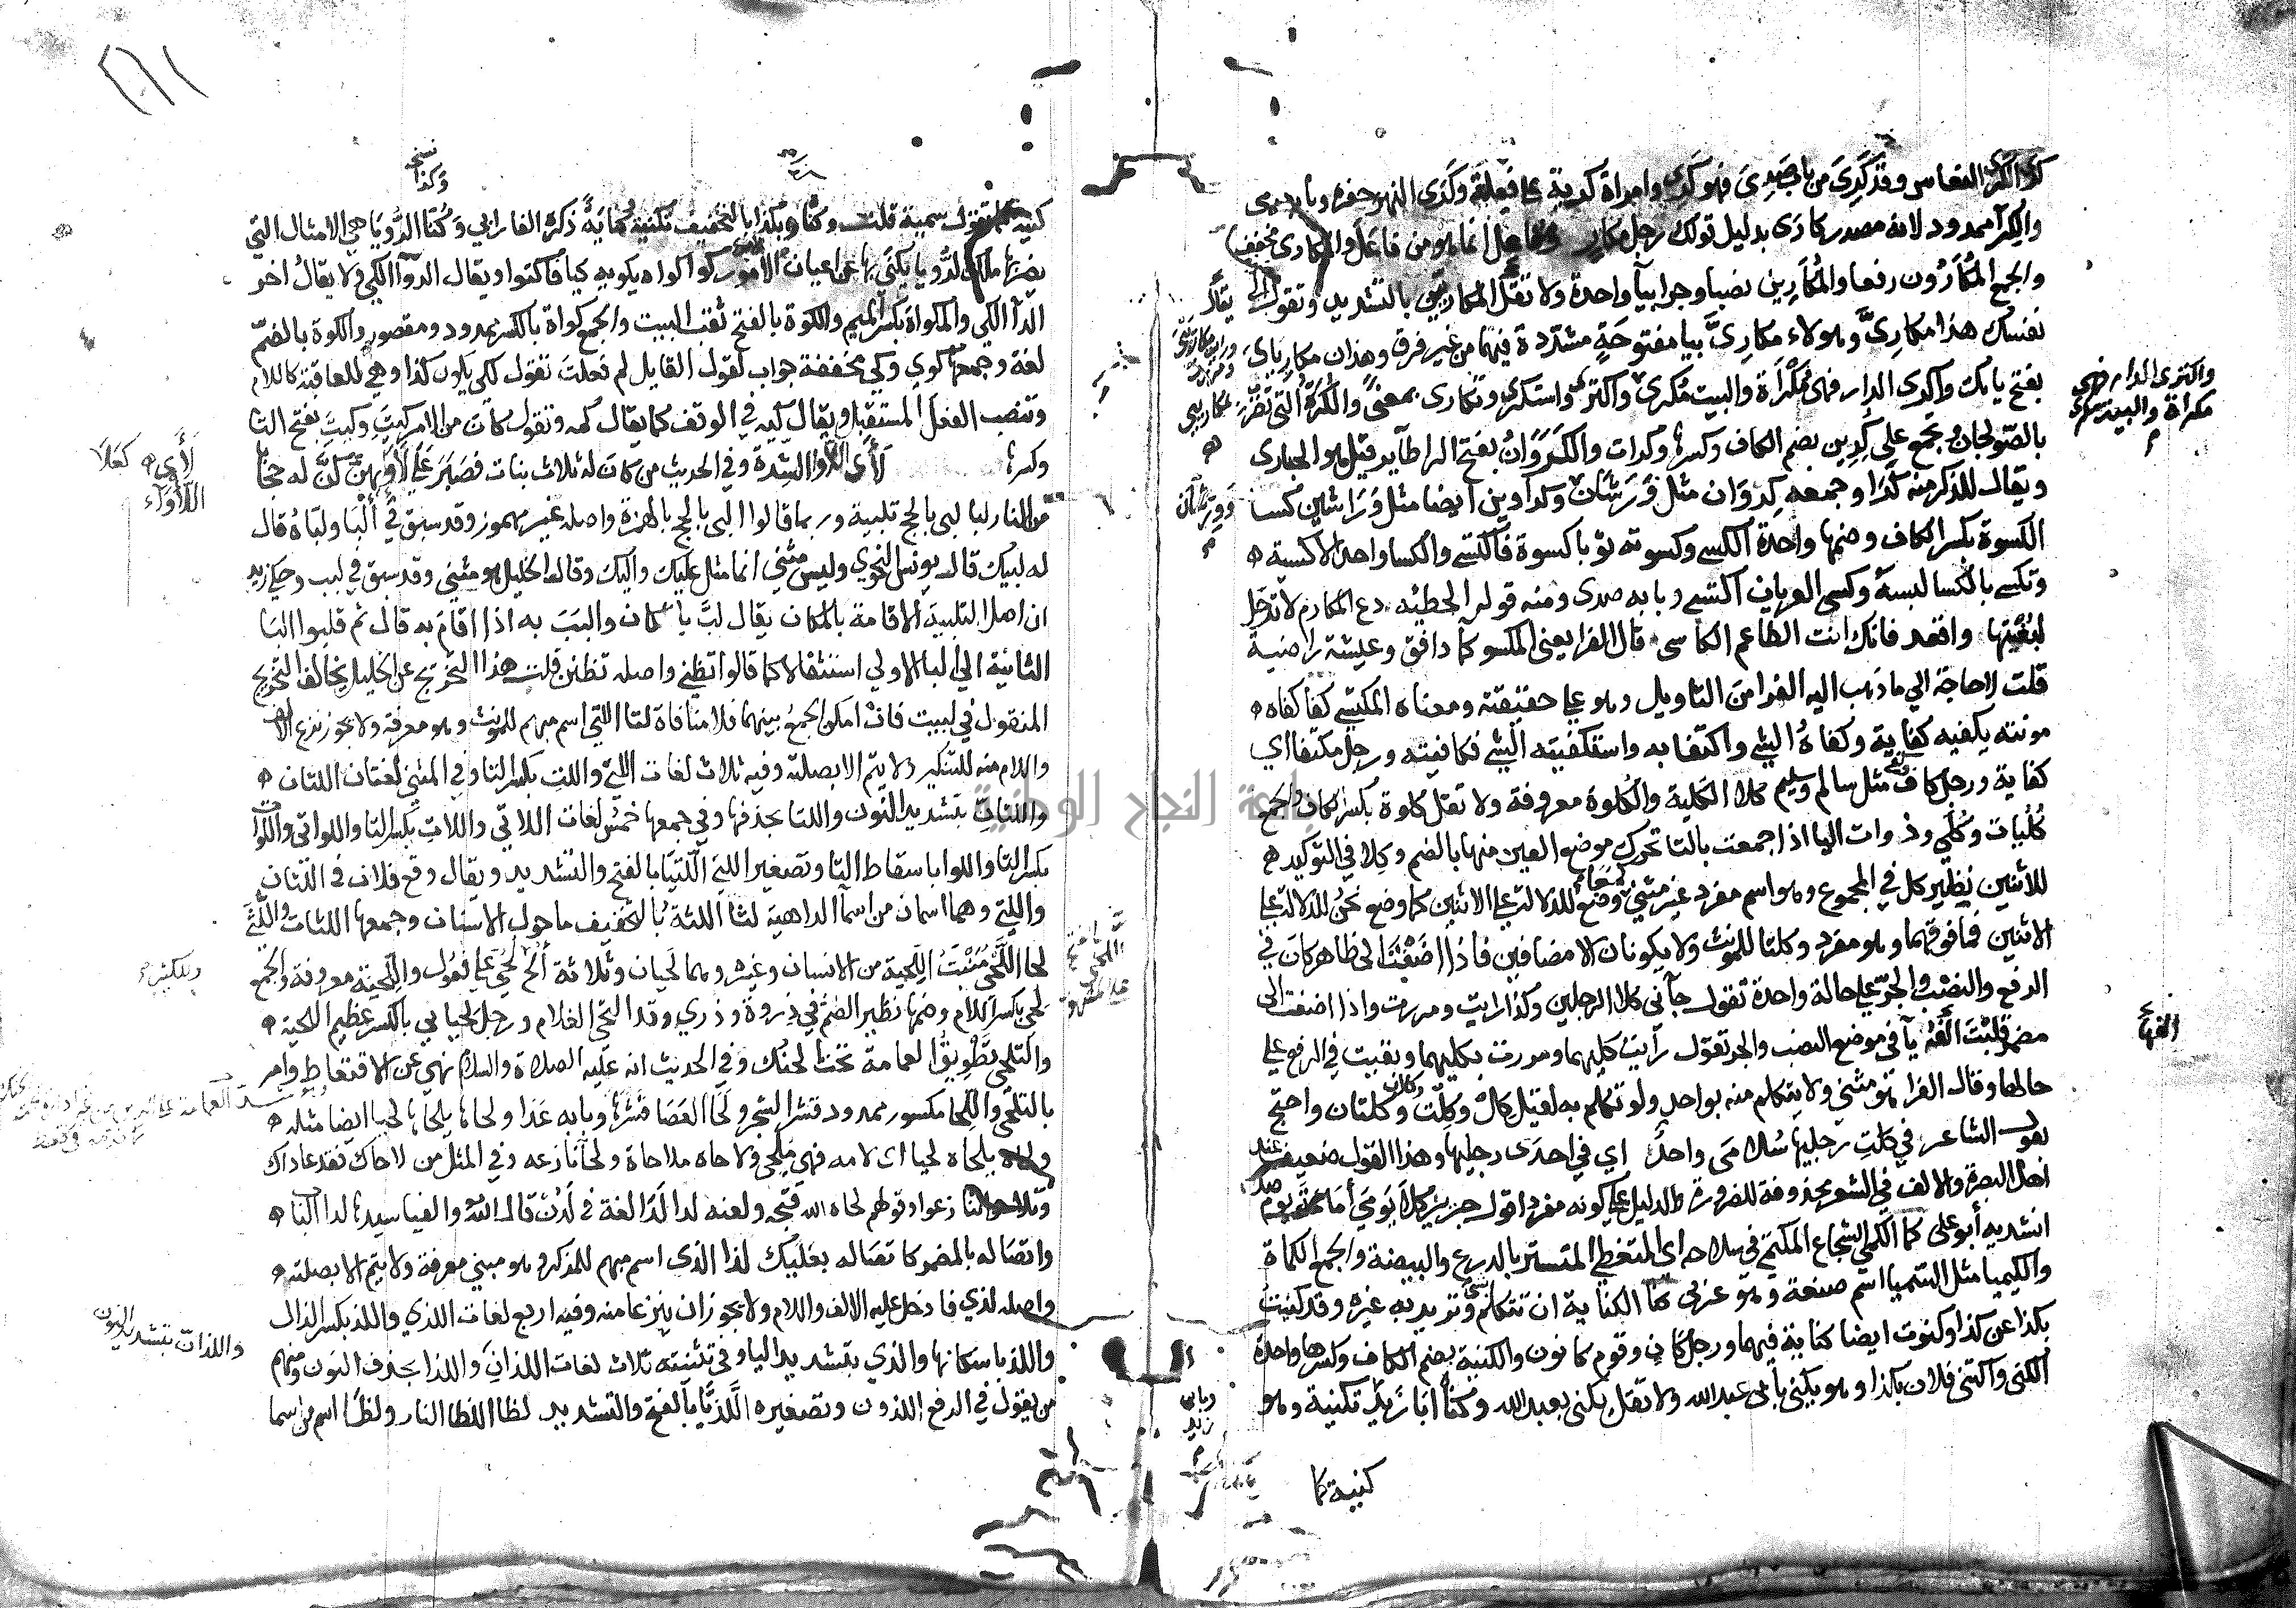 كرا الكرى النعاس وقد كرى من باب صدى فهو كرى وامراة كرية على فعيلة وكرى النهر حفره وبابه رمى
والكرآ ممدود لانه مصدر كارى بدليل قولك رجل مكار ومفاعل انما هو من فاعل والمكارى مخفف
والجمع المكارون رفعا والمكارين نصبا وجرا بيآ واحدة ولا تقل المكاريين بالتشديد وتقول
نفسك هذا مكاريَّ وهولاء مكاريَّ بيا مفتوحة مشددة فيهما من غير فرق وهذان مكارياى
بفتح يايك واكرى الدار فهى مكراة والبيت مكرى واكترى واستكرى وتكارى بمعنى والكرة التى تضرب
بالصولجان وتجمع على كرين بضم الكاف وكسرها وكرات والكروان بفتح الرا طآير قيل هو الحبارى
ويقال للذكر منه كرا وجمعه كروان مثل ورشان وكراوين ايضا مثل وراشين كسا
الكسوة بكسر الكاف وضمها واحدة الكسى وكسوته ثوبا كسوة فاكتسى والكسا واحد الاكسية
وتكسى بالكسا لبسه وكسى العريان اكتسى وبابه صدى ومنه قول الحطيئه دع المكارم لا ترحل
لبغيتها واقعد فانك انت الطاعم الكاسى قال الفرا يعنى المكسو كمآ دافق وعيشة راضية
قلت لا حاجة الى ما ذهب اليه الفرا من التاويل وهو على حقيقته ومعناه المكتسى كفا كفاه
مونته يكفيه كفاية وكفاه الشى واكتفا به واستكفيته الشى فكافيته ورجل مكتفا اى
كفاية ورجل كاف مثل سالم وسليم كلا الكلية والكلوة معروفة ولا تقل كلوة بكسر الكاف والجمع
كليات وكلى وذوات اليا اذا جمعت بالتا تحرك موضع العين منها بالضم وكلا فى التوكيد
للاثنين نظير كل فى المجموع وهو اسم مفرد غير مثنى وضع للدلالة على الاثنين كما وضع نحن للدلالة على
الاثنين فما فوقهما وهو مفرد وكلتا للمونث ولا يكونان الا مضافين فاذا اضفتا الى ظاهر كان فى
الرفع والنصب والجر على حالة واحدة تقول جآنى كلا الرجلين وكذا رايت ومررت واذا اضفت الى
مضمر قلبت الفه يآ فى موضع النصب والجر تقول رآيت كليهما ومررت بكليهما وبقيت فى الرفع على
حالها وقال الفرا هو مثنى ولا يتكلم منه بواحد ولو تكلم به لقيل كل وكلت وكلتان واحتج
بقول الشاعر فى كلت رجليها سلامى واحد اى فى احدى رجليها وهذا القول ضعيف عند
اهل البصرة والالف فى الشعر محذوفة للضرورة والدليل على كونه مفردا قول جرير كلا يومى امامة يوم صد
انشديه أبو على كما الكمى الشجاع المكتم فى سلاحه اى المتغطى المتستر بالدرع والبيضة والجمع الكماة
والكيميا مثل السيميا اسم صنعة وهو عربى كنا الكناية ان تتكلم بشى وتريد به غيره وقد كنيت
بكذا عن كذا وكنوت ايضا كناية فيهما ورجل كان وقوم كانون والكنية بضم الكاف وكسرها واحدة
الكنى واكتنى فلان بكذا وهو يكنى بابى عبد الله ولا تقل يكنى بعبد الله وكناه ابا زيد تكنية وهو
كنيه كما
واكترى الدار فهى
مكراة والبيت مكرى
الفها
كنيه كما تقول سمية قلت وكناه بكذا بالتخفيف يكنيه كناية ذكره الفارابي وكنا الرؤيا هى الامثال التى
يضربها ملك الرؤيا يكنى بها عن اعيان الامور كوا كواه يكويه كيا فاكتوا ويقال آخر الدوآ الكى ولا يقال اخر
الدآ الكى والمكواة بكسر الميم والكوة بالفتح ثقب البيت والجمع كواة بالكسر ممدود ومقصور والكوة بالضم
لغة وجمعها كوى وكى مخففة جواب لقول القايل لم فعلت تقول كى يكون كذا وهى للعاقبة كاللام
وتنصب الفعل المستقبل ويقال كيه فى الوقف كما يقال لمه وتقول كان من الامر كيت وكيت بفتح التا
وكسرها لأى اللاوا الشدة وفى الحديث من كانت له ثلاث بنات فصبر على لاوايهن كن له حجابا
من النار لبا لبى بالحج تلبية وربما قالوا البى بالحج بالهمزة واصله غير مهموز وقد سبق فى ألبا ولباه قال
له لبيك قال يونس النحوى وليس مثنى انما مثل عليك واليك وقال الخليل هو مثنى وقد سبق فى لبب وحكى ابو زيد
ان اصل التلبية الاقامة بالمكان يقال لب بالمكان والبب به اذا اقام به قال ثم قلبوا البا
الثانية الى اليا الاولى استثقالا كما قالوا تظنى واصله تظنن قلت هذا التخريج عن الخليل يخالف التخريج
المنقول فى لبيت فان امكن الجمع بينهما فلا منافاة لتا التى اسم مبهم للمونث وهو معرفة ولا يجوز نزع الالف
واللام منه للتنكير ولا يتم الا بصلته وفيه ثلاث لغات التى واللت بكسر التا وفى المثنى لغتان اللتان
واللتان بتشديد النون واللتا بحذفها وفى جمعها خمس لغات اللاتى واللات بكسر التا واللواتى واللوات
بكسر التا واللوا باسقاط التا وتصغير التى اللتيا بالفتح والتشديد ويقال وقع فلان فى اللتيا
والتى وهما اسمان من اسمآ الداهية لثا اللثة بالتخفيف ما حول الاسنان وجمعها اللثات واللثى
لحا اللحى منبت اللحية من الانسان وغيره وهما لحيان وثلاثة ألح ولحى على فعول واللحية معروفة والجمع
لحى بكسر اللام وضمها نظير الضم فى ذروة وذرى وقد التحى الغلام ورجل لحيانى بالكسر عظيم اللحية
والتلحى تطويق العمامة تحت الحنك وفى الحديث انه عليه الصلاة والسلام نهى عن الاقتعاط وامر
بالتلحى واللحا مكسور ممدود قشر الشجر ولحا العصا قشرها وبابه عدا ولحاها يلحاها لحيا ايضا مثله
ولحاه يلحاه لحيا اى لامه فهى ملحى ولاحاه ملاحاة ولحآ نازعه وفى المثل من لاحاك فقد عاداك
وتلاحوا تنازعوا وقولهم لحاه الله قبحه ولعنه لدا لدا لغة فى لدن قال الله والفيا سيدها لدا الباب
واتصاله بالمضمر كاتصاله بعليك لذا الذى اسم مبهم للمذكر وهو مبنى معرفة ولا يتم الا بصلته
واصله لذي فادخل عليه الالف واللام ولا يجوز ان ينزعا منه وفيه اربع لغات الذى واللذ بكسر الذال
واللذ باسكانها والذى بتشديد اليا وفى تثنيته ثلاث لغات اللذان واللذا بحذف النون ومنهم
من يقول فى الرفع اللذون وتصغيره اللذيا بالفتح والتشديد لظا اللظا النار ولظا اسم من اسما
نسخه
وكذا
لأى كعلا
اللأوآء
واللذان بتشديد النون
جامعة النجاح الوطنية